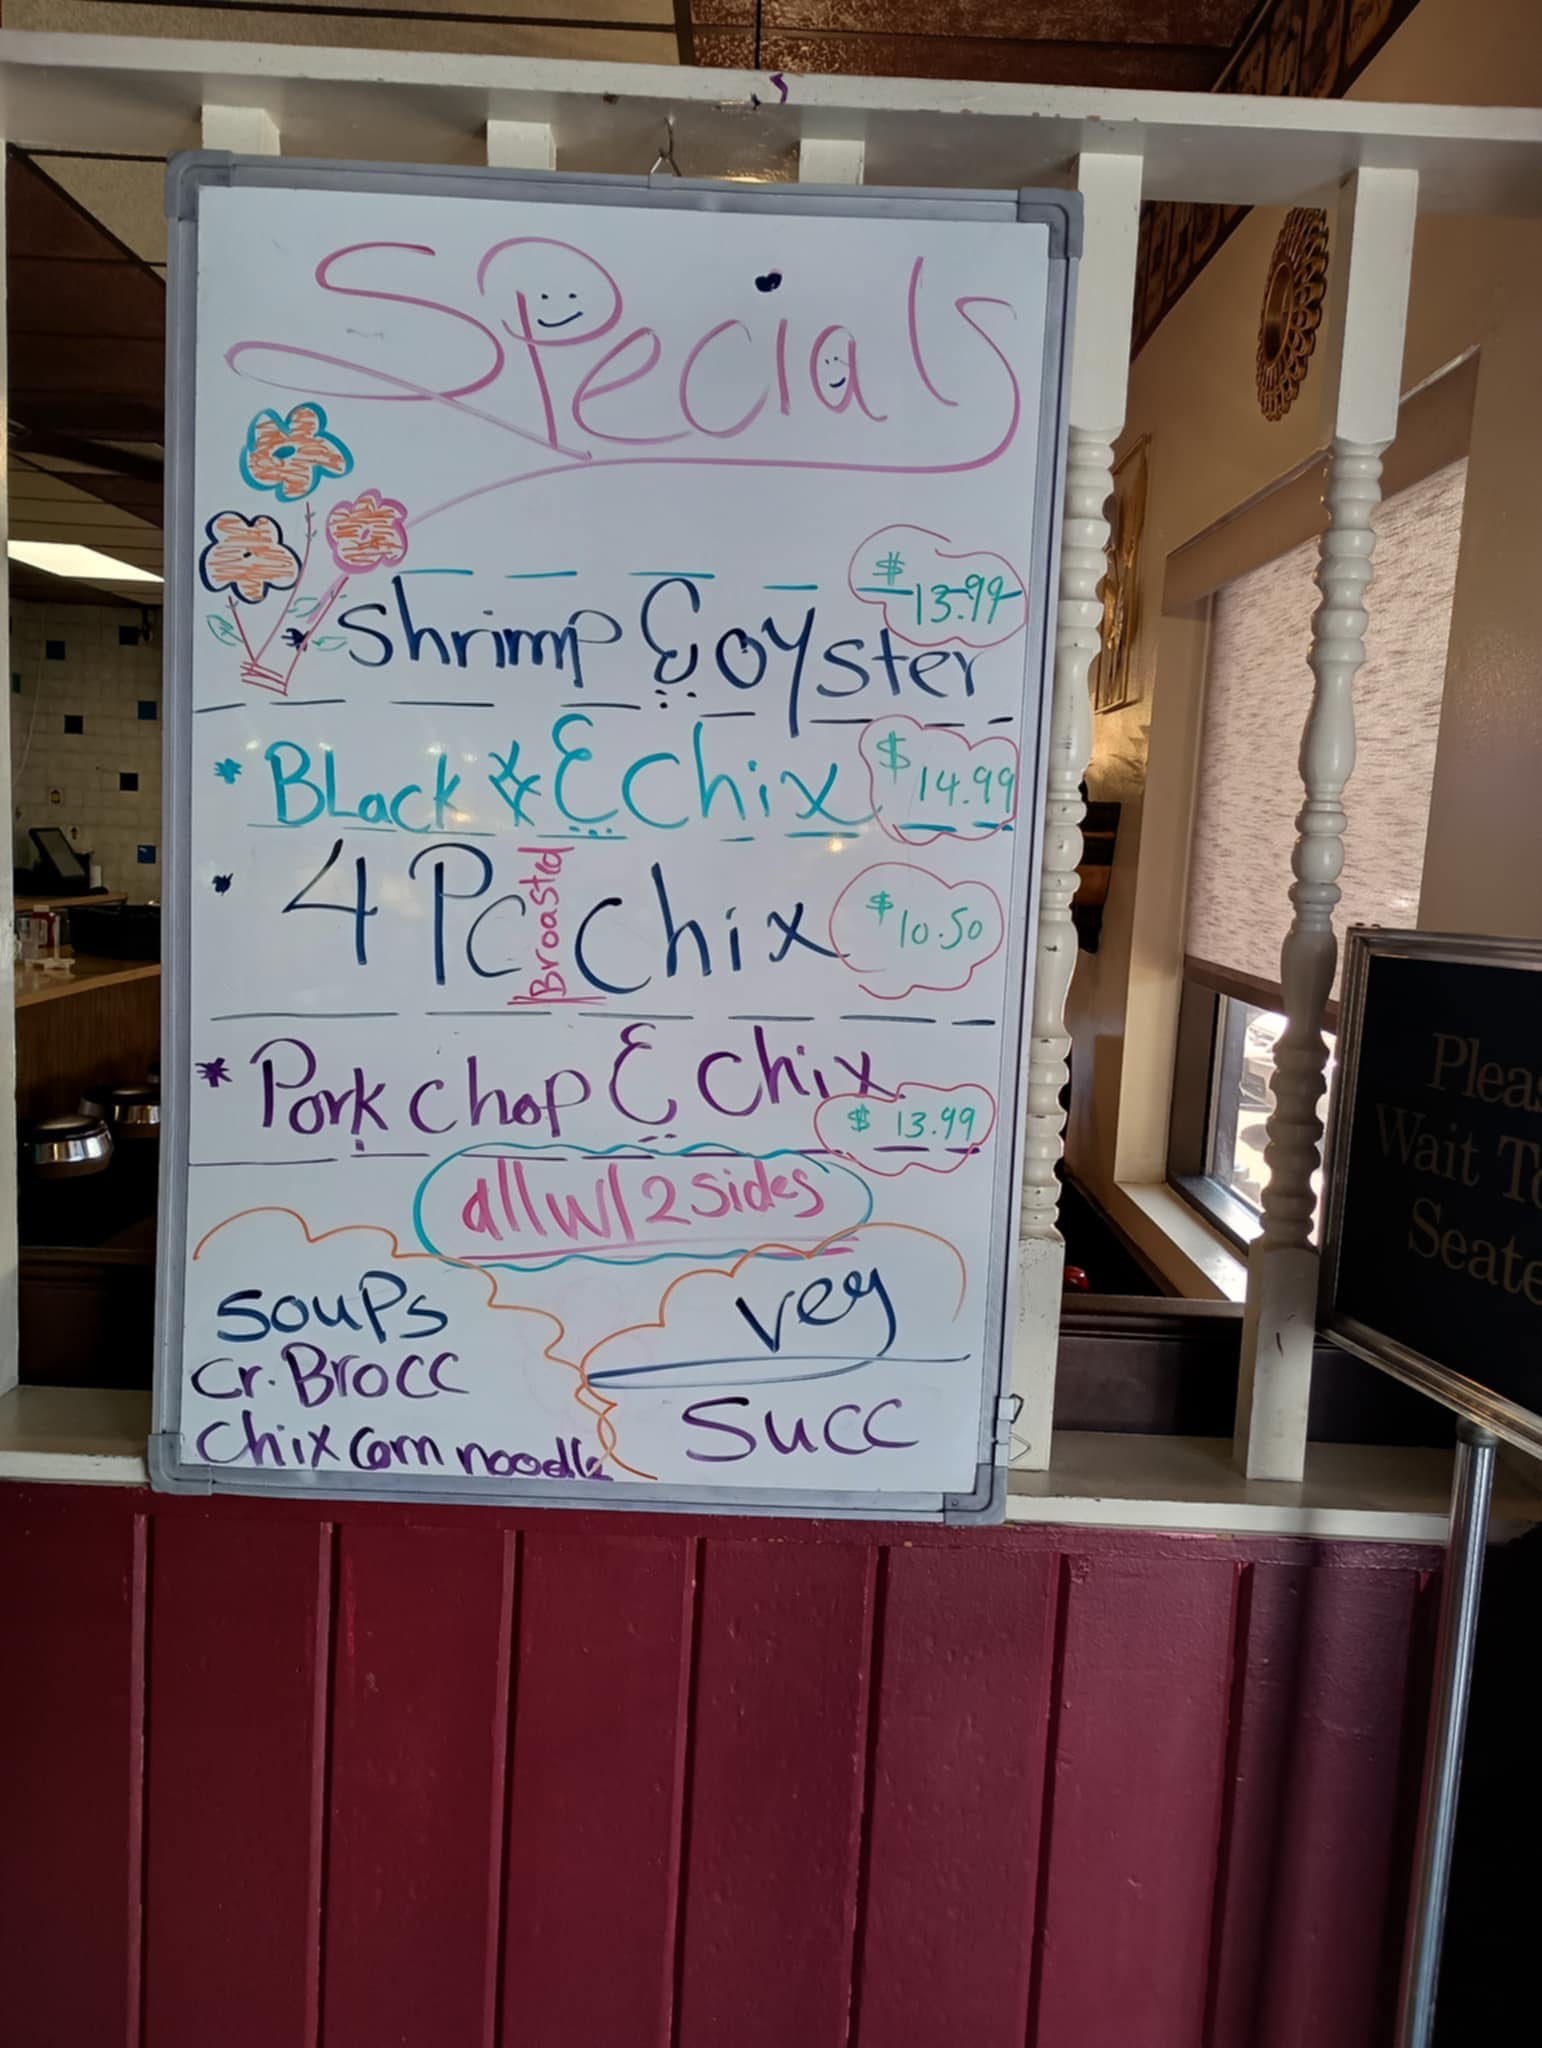 Specials
$13.99
* Shrimp & oyster
* Black & Chix $14.99
4 Pc Broasted Chix $10.50
* Pork chop & Chix
$13.99
all w/ 2 sides
Soups
Cr. Brocc
Chix Corn noodle
Veg
Succ
Wait